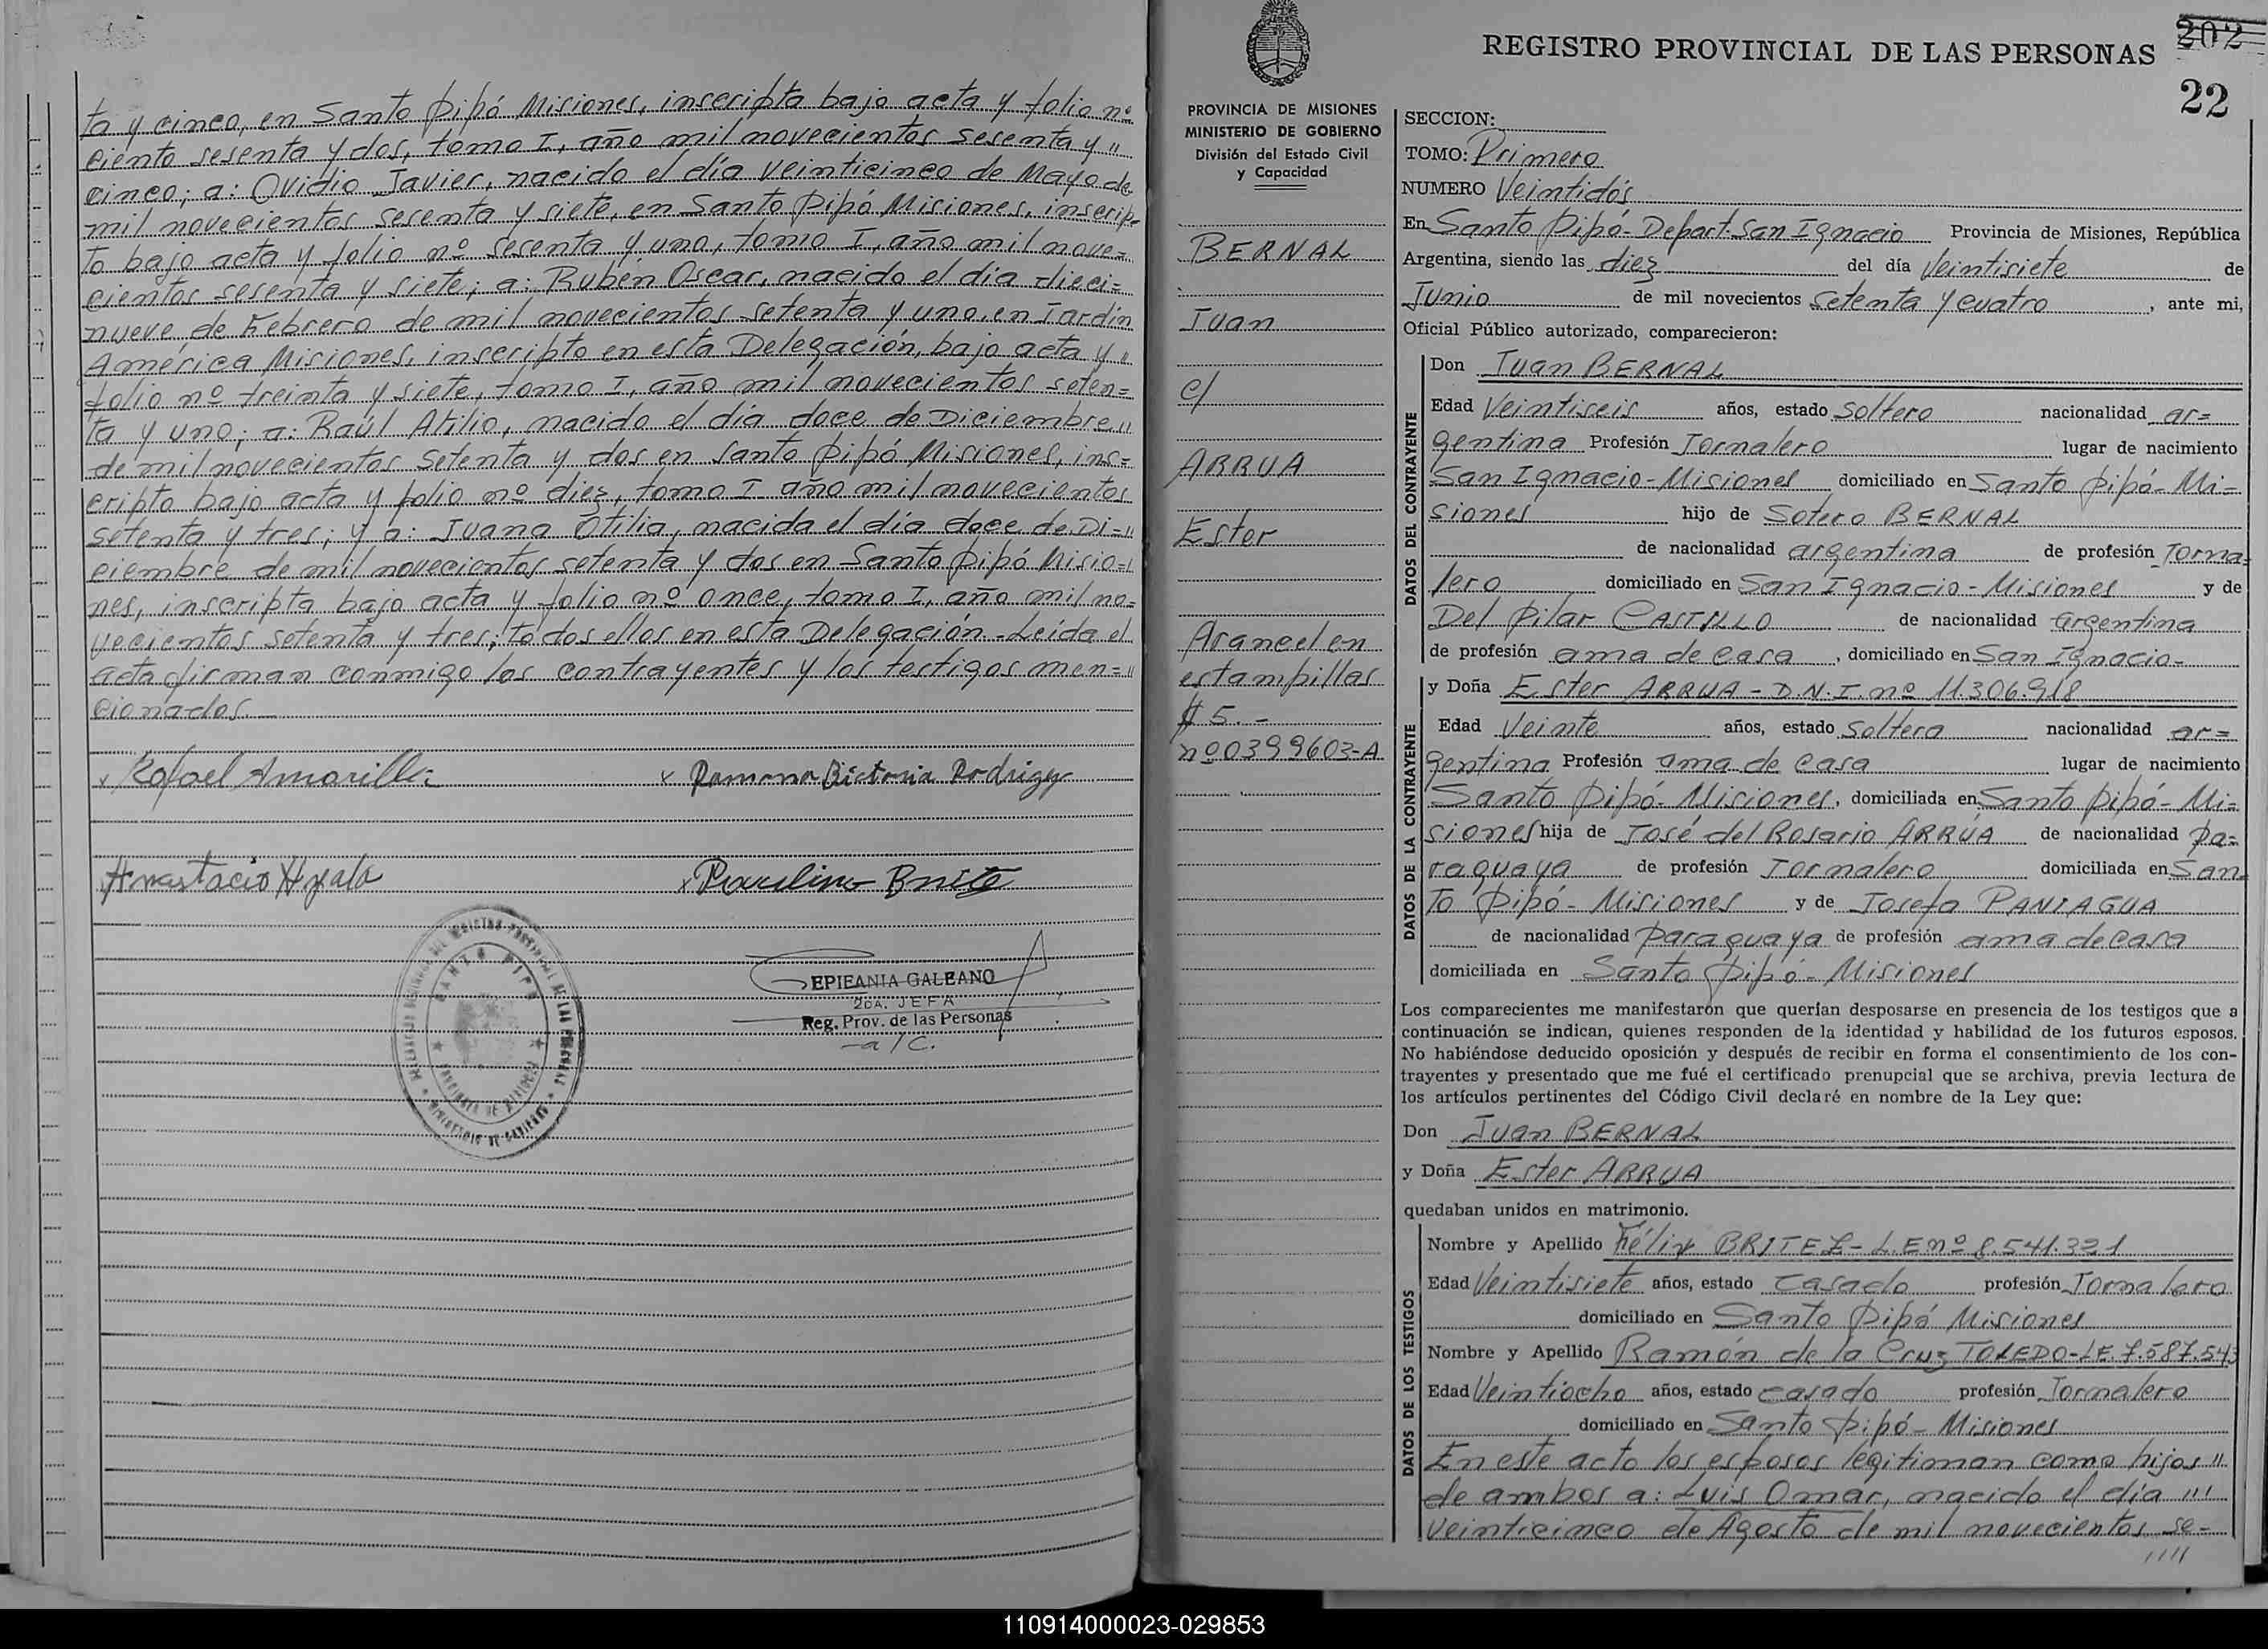 ta y cinco, en Santo Pipó Misiones, inscripta bajo acta y folio nº
ciento sesenta y dos, tomo I, año mil novecientos sesenta y "
cinco; a: Ovidio Javier, nacido el día veinticinco de Mayo de
mil novecientos sesenta y siete, en Santo Pipó Misiones, inscrip-
to bajo acta y folio nº sesenta y uno, tomo I, año mil nove=
cientos sesenta y siete; a: Rubén Oscar, nacido el día dieci=
nueve de Febrero de mil novecientos setenta y uno, en Jardín
América Misiones, inscripto en esta Delegación, bajo acta y "
folio nº treinta y siete, tomo I, año mil novecientos seten=
ta y uno; a: Raúl Atilio, nacido el día doce de Diciembre "
de mil novecientos setenta y dos en Santo Pipó Misiones, ins=
cripto bajo acta y folio nº diez, tomo I año mil novecientos
setenta y tres; y a: Juana Otilia, nacida el día doce de Di="
ciembre de mil novecientos setenta y dos en Santo Pipó Misio=
nes, inscripta bajo acta y folio nº once, tomo I, año mil no=
vecientos setenta y tres; todos ellos en esta Delegación.-Leída el
acta firman conmigo los contrayentes y los testigos men="
cionados.
x Rafael Amarilla x Ramona Bictoria Rodriguez
Anastacio Ayala x Paulino Brite
SANTO PIPO
PROVINCIA DE MISIONES
MINISTERIO DE GOBIERNO
EPIFANIA GALEANO
2da. JEFA
Reg. Prov. de las Personas
-a/C.
REGISTRO PROVINCIAL DE LAS PERSONAS
202
22
PROVINCIA DE MISIONES
MINISTERIO DE GOBIERNO
División del Estado Civil
y Capacidad
BERNAL
Juan
c/
ARRUA
Ester
Arancel en
estampillas
$ 5.-
nº 0399603-A
SECCION:
TOMO: Primero
NUMERO Veintidós
En Santo Pipó-Depart. San Ignacio Provincia de Misiones, República
Argentina, siendo las diez del día Veintisiete de
Junio de mil novecientos setenta y cuatro, ante mi,
Oficial Público autorizado, comparecieron:
DATOS DEL CONTRAYENTE
Don Juan BERNAL
Edad Veintiseis años, estado soltero nacionalidad ar=
gentina Profesión Jornalero lugar de nacimiento
San Ignacio-Misiones domiciliado en Santo Pipó-Mi=
siones hijo de Sotero BERNAL
de nacionalidad argentina de profesión Jorna=
lero domiciliado en San Ignacio-Misiones y de
Del Pilar CASTILLO de nacionalidad argentina
de profesión ama de casa, domiciliado en San Ignacio-
DATOS DE LA CONTRAYENTE
y Doña Ester ARRUA-D.N.I. nº 11.306.918
Edad Veinte años, estado soltera nacionalidad ar=
gentina Profesión ama de casa lugar de nacimiento
Santo Pipó-Misiones, domiciliada en Santo Pipó-Mi=
siones hija de José del Rosario ARRÚA de nacionalidad pa=
raguaya de profesión Jornalero domiciliado en San=
to Pipó-Misiones y de Josefa PANIAGUA
de nacionalidad paraguaya de profesión ama de casa
domiciliada en Santo Pipó-Misiones
Los comparecientes me manifestaron que querían desposarse en presencia de los testigos que a
continuación se indican, quienes responden de la identidad y habilidad de los futuros esposos.
No habiéndose deducido oposición y después de recibir en forma el consentimiento de los con-
trayentes y presentado que me fué el certificado prenupcial que se archiva, previa lectura de
los artículos pertinentes del Código Civil declaré en nombre de la Ley que:
Don Juan BERNAL
y Doña Ester ARRUA
quedaban unidos en matrimonio.
DATOS DE LOS TESTIGOS
Nombre y Apellido Félix BRITEZ-L.E nº 8.541.321
Edad Veintisiete años, estado casado profesión Jornalero
domiciliado en Santo Pipó Misiones
Nombre y Apellido Ramón de la Cruz TOLEDO-LE. 7.587.543
Edad Veintiocho años, estado casado profesión Jornalero
domiciliado en Santo Pipó-Misiones
En este acto los esposos legitiman como hijos "
de ambos a: Luis Omar, nacido el día "'
veinticinco de Agosto de mil novecientos se-
////
110914000023-029853